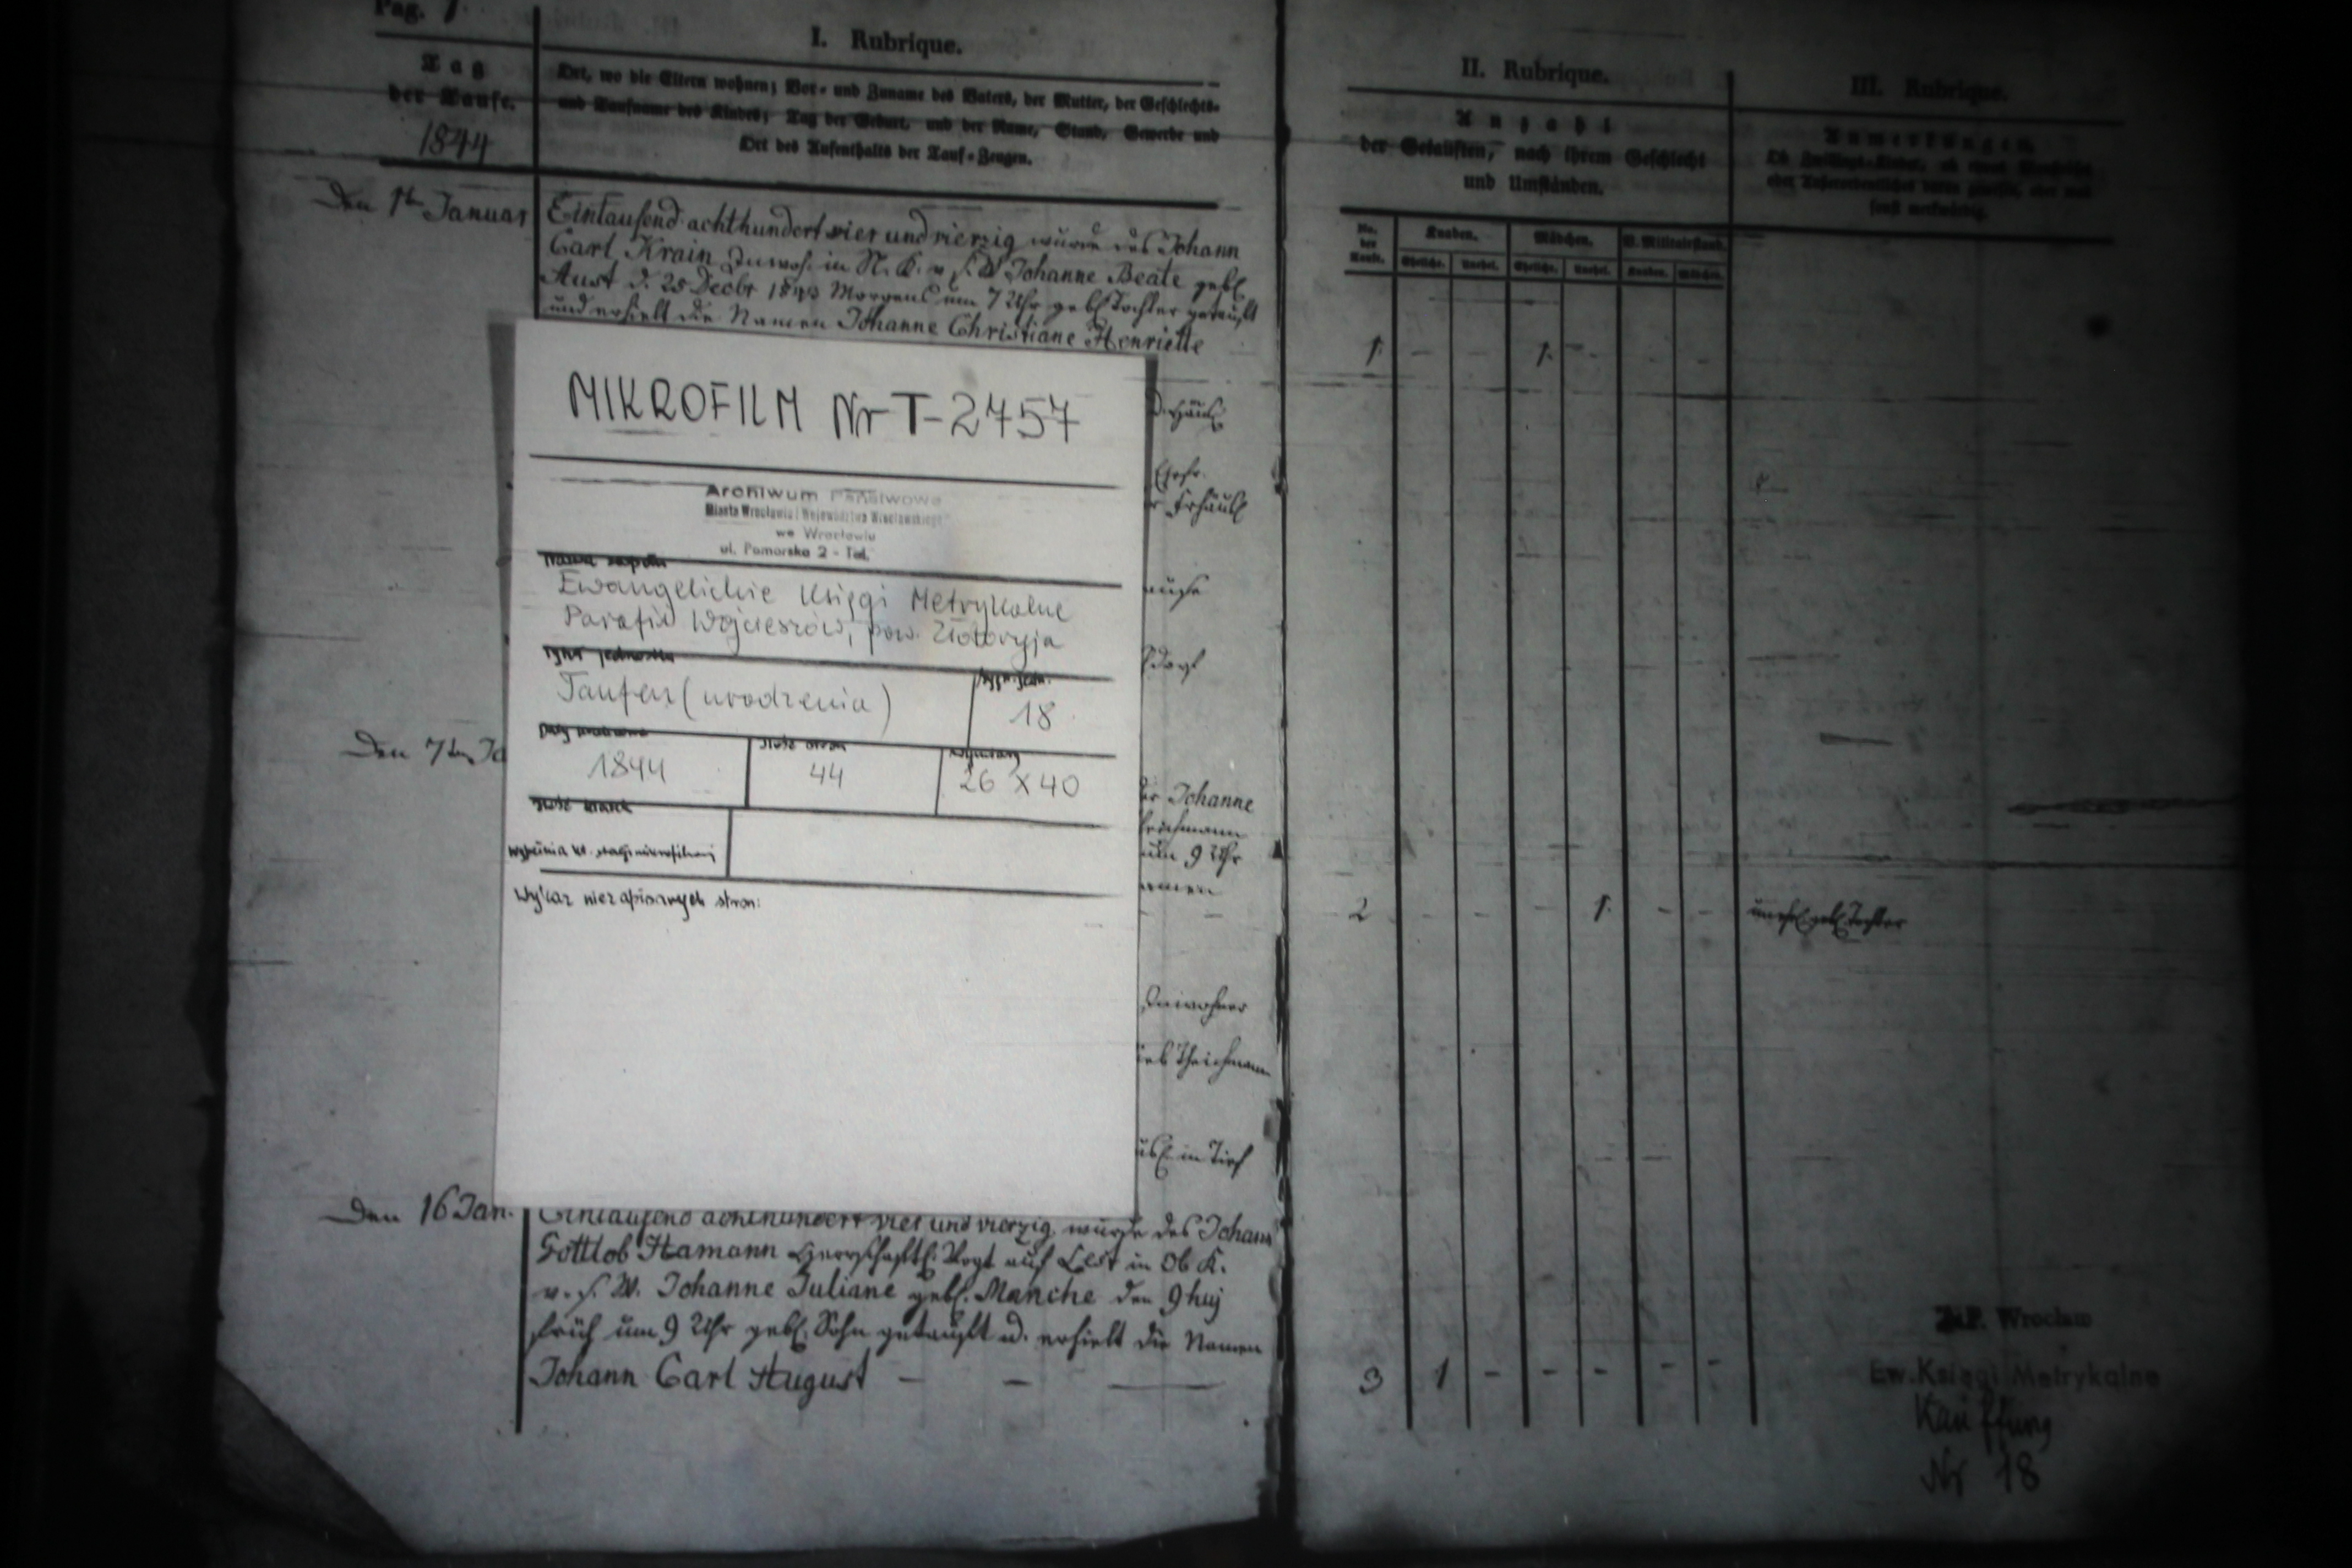 Pag. 1.
I. Rubrique.
Tag
der Taufe.
1844
Ort, wo die Eltern wohnen; Vor- und Zuname des Vaters, der Mutter, der Geschlechts-
und Taufname des Kindes; Tag der Geburt, und der Name, Stand, Gewerbe und
Ort des Aufenthalts der Tauf-Zeugen.
Den 1ten Januar
Eintausend achthundert vier und vierzig wurde des Johann
Carl Krain Inwoh. in N. K. v. s. W Johanne Beate geb.
Aust d. 25 Decbr 1843 Morgens um 7 Uhr geb. Tochter getauft
und erhielt die Namen Johanne Christiane Henriette
MIKROFILM Nr T-2757
Archiwum Państwowe
Miasta Wrocławia i Województwa Wrocławskiego
we Wrocławiu
ul. Pomorska 2 - Tel.
Nazwa zespołu
Ewangelickie Księgi Metrykalne
Parafia Wojcieszów, pow. Złotoryja
Tytuł jednostki
Sygn. jedn.
Taufen (urodzenia)
18
Daty krańcowe
Ilość stron
Wymiary
1844
44
26 x 40
Ilość klatek
Wykaz niezapisanych stron:
Den 7ten Ja
er Johanne
um 9 Uhr
amen
Inwohner
ieb Theichmann
Den 16 Jan.
Eintausend achthundert vier und vierzig wurde des Johann
Gottlob Hamann herrschaftl. Vogt auf Lest in Ob K.
v. s. W. Johanne Juliane geb. Manche den 9 huj
früh um 9 Uhr geb. Sohn getauft u. erhielt die Namen
Johann Carl August
II. Rubrique.
Anzahl
der Getauften, nach ihrem Geschlecht
und Umständen.
No.
der
Taufe.
Knaben.
Mädchen.
V. Militairstand.
Eheliche. Unehel. Eheliche. Unehel. Knaben. Mädchen.
1. - - 1. - - -
2 - - - 1. - -
3 1 - - - - -
III. Rubrique.
Anmerkungen.
Ob Zwillings-Kinder, ob
sonst merkwürdig.
unehel. geb. Tochter
A.P. Wrocław
Ew. Księgi Metrykalne
Kauffung
Nr 18